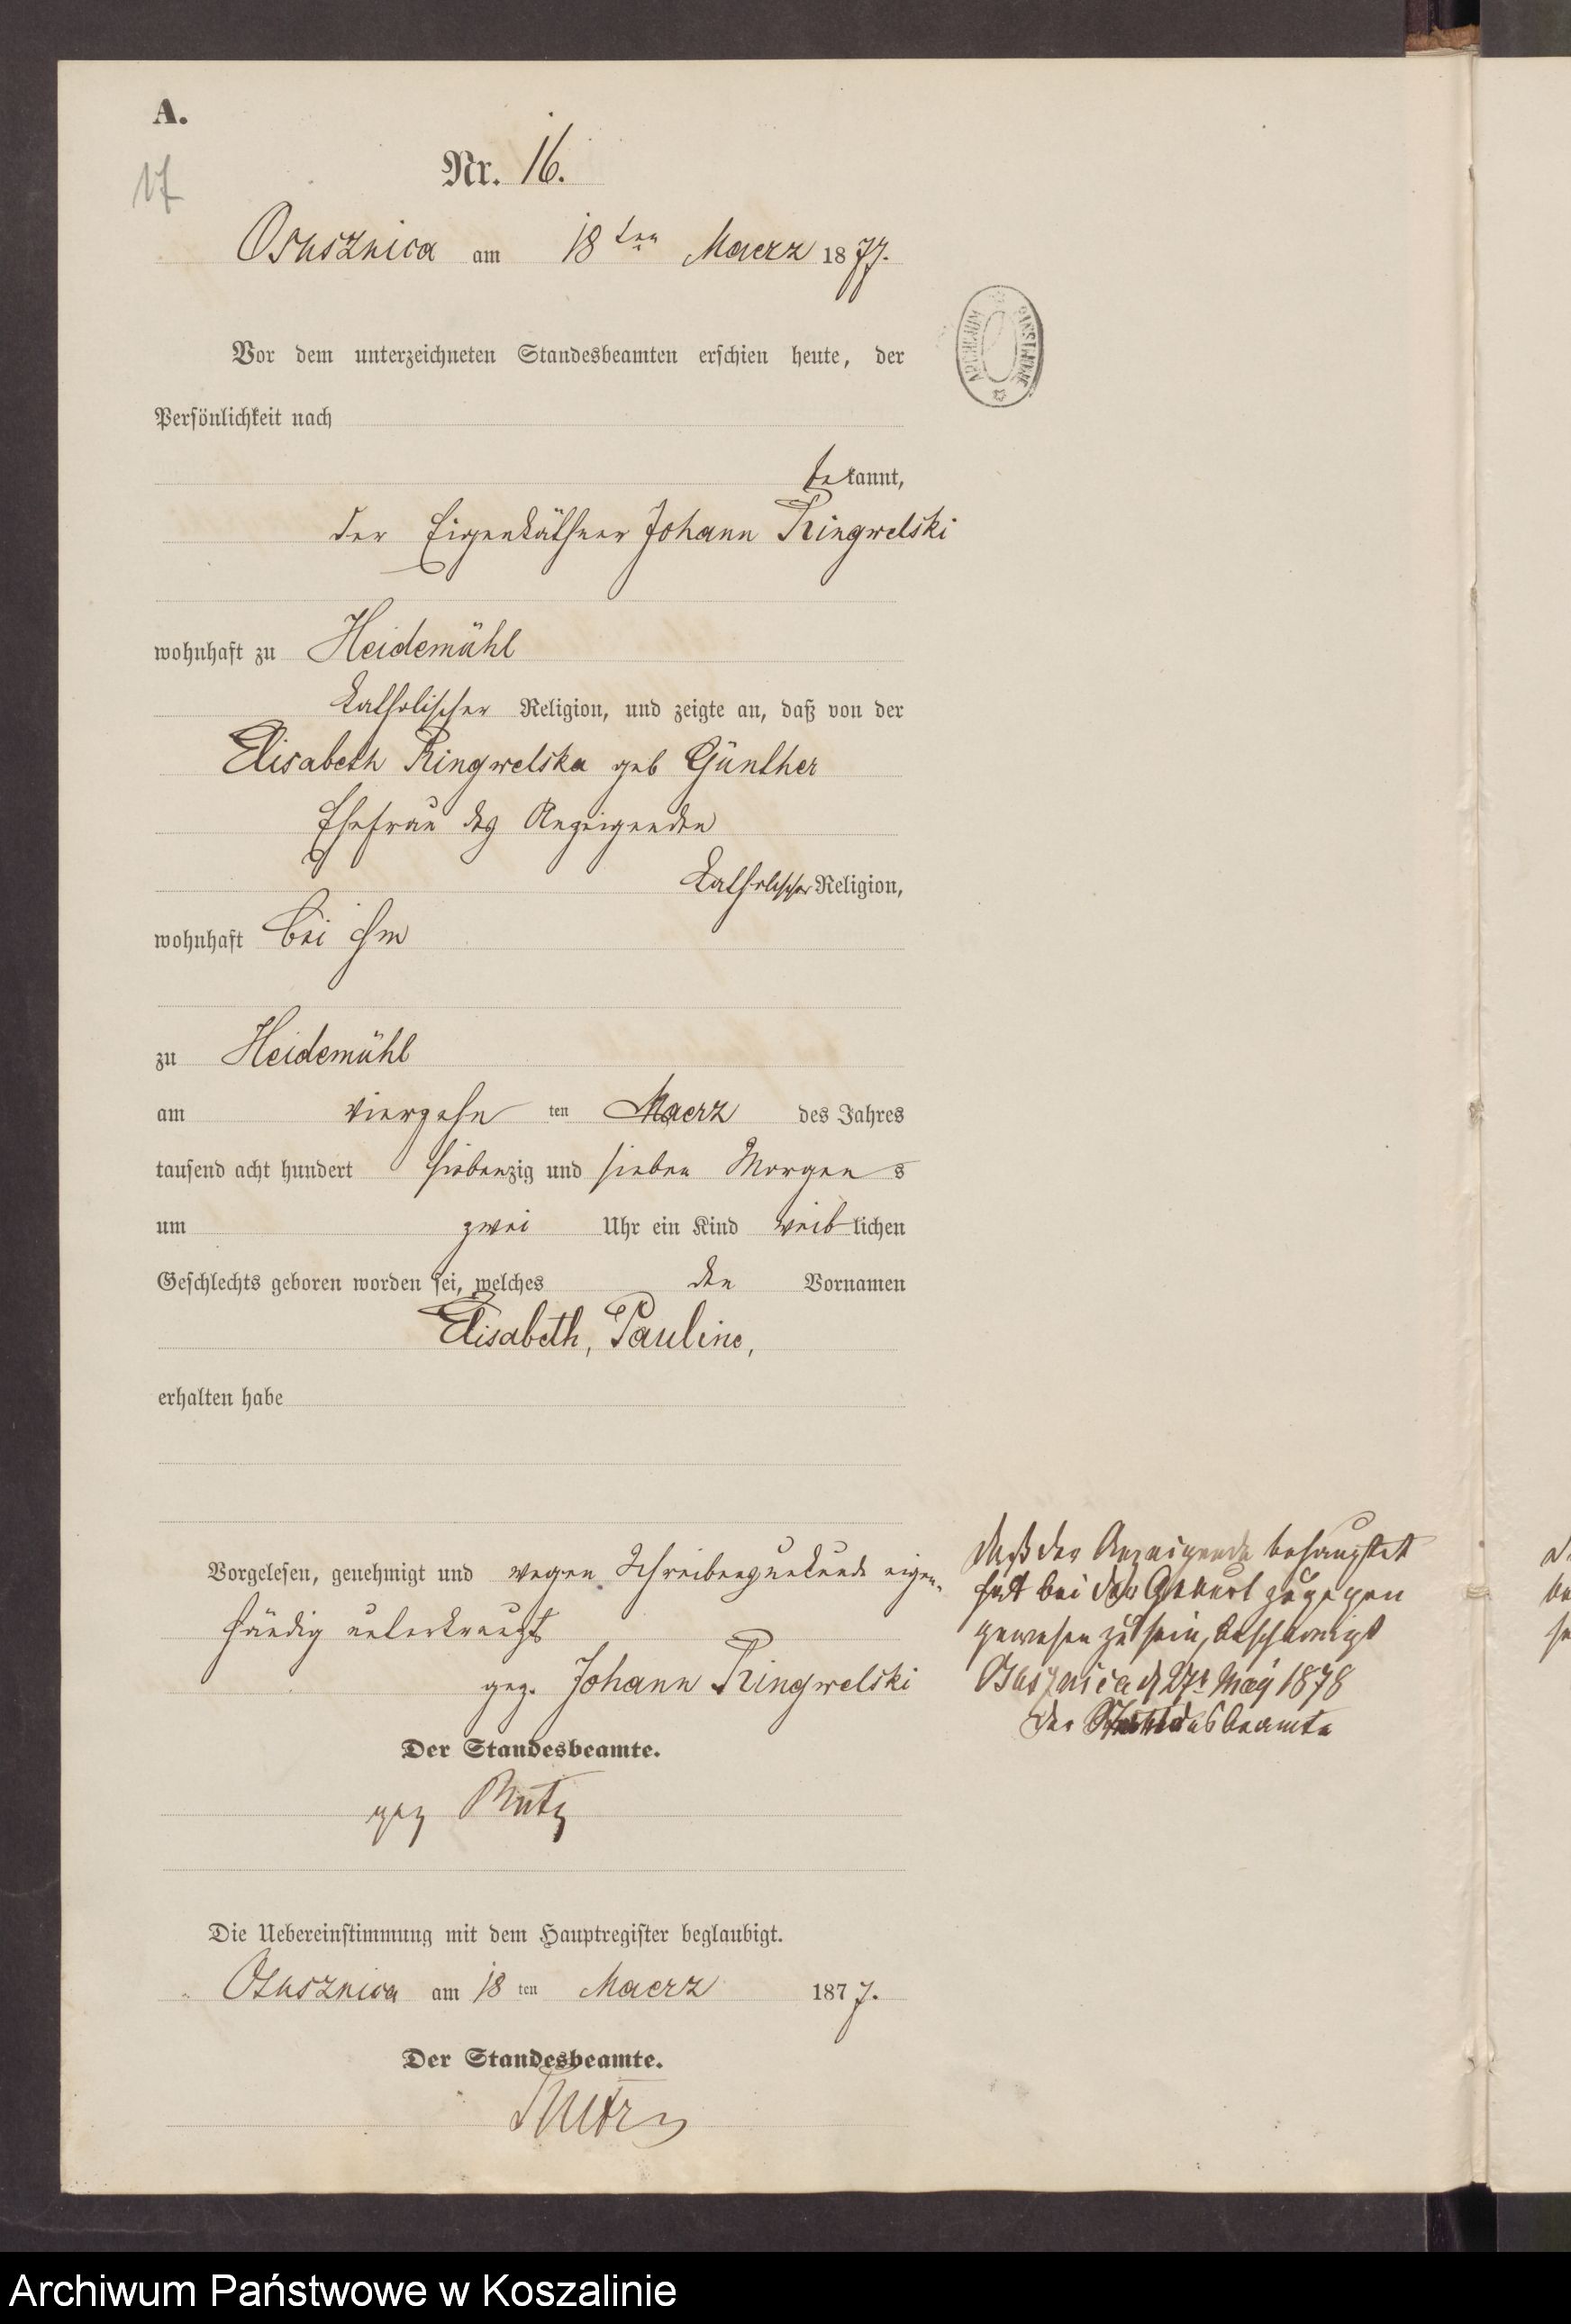 A.
17
Nr. 16.
Osusznica am 18ten Maerz 1877.
ARCHIWUM PAŃSTWOWE
Vor dem unterzeichneten Standesbeamten erschien heute, der
Persönlichkeit nach
bekannt,
der Eigenkäthner Johann Ringwelski
wohnhaft zu Heidemühl
katholischer Religion, und zeigte an, daß von der
Elisabeth Ringwelska geb Günther
Ehefrau des Anzeigenden
katholischer Religion,
wohnhaft bei ihm
zu Heidemühl
am vierzehn ten Maerz des Jahres
tausend acht hundert siebenzig und sieben Morgens
um zwei Uhr ein Kind weiblichen
Geschlechts geboren worden sei, welches den Vornamen
Elisabeth, Pauline,
erhalten habe
Vorgelesen, genehmigt und wegen Schreibensunkunde eigen-
händig unterkreuzt
gez. Johann Ringwelski
Der Standesbeamte.
gez
Die Uebereinstimmung mit dem Hauptregister beglaubigt.
Osusznica am 18 ten Maerz 1877.
Der Standesbeamte.
daß der Anzeigende behauptet
hat bei der Geburt zugegen
gewesen zu sein, bescheinigt
Osusznica d 27t May 1878
Der Standesbeamte
Archiwum Państwowe w Koszalinie